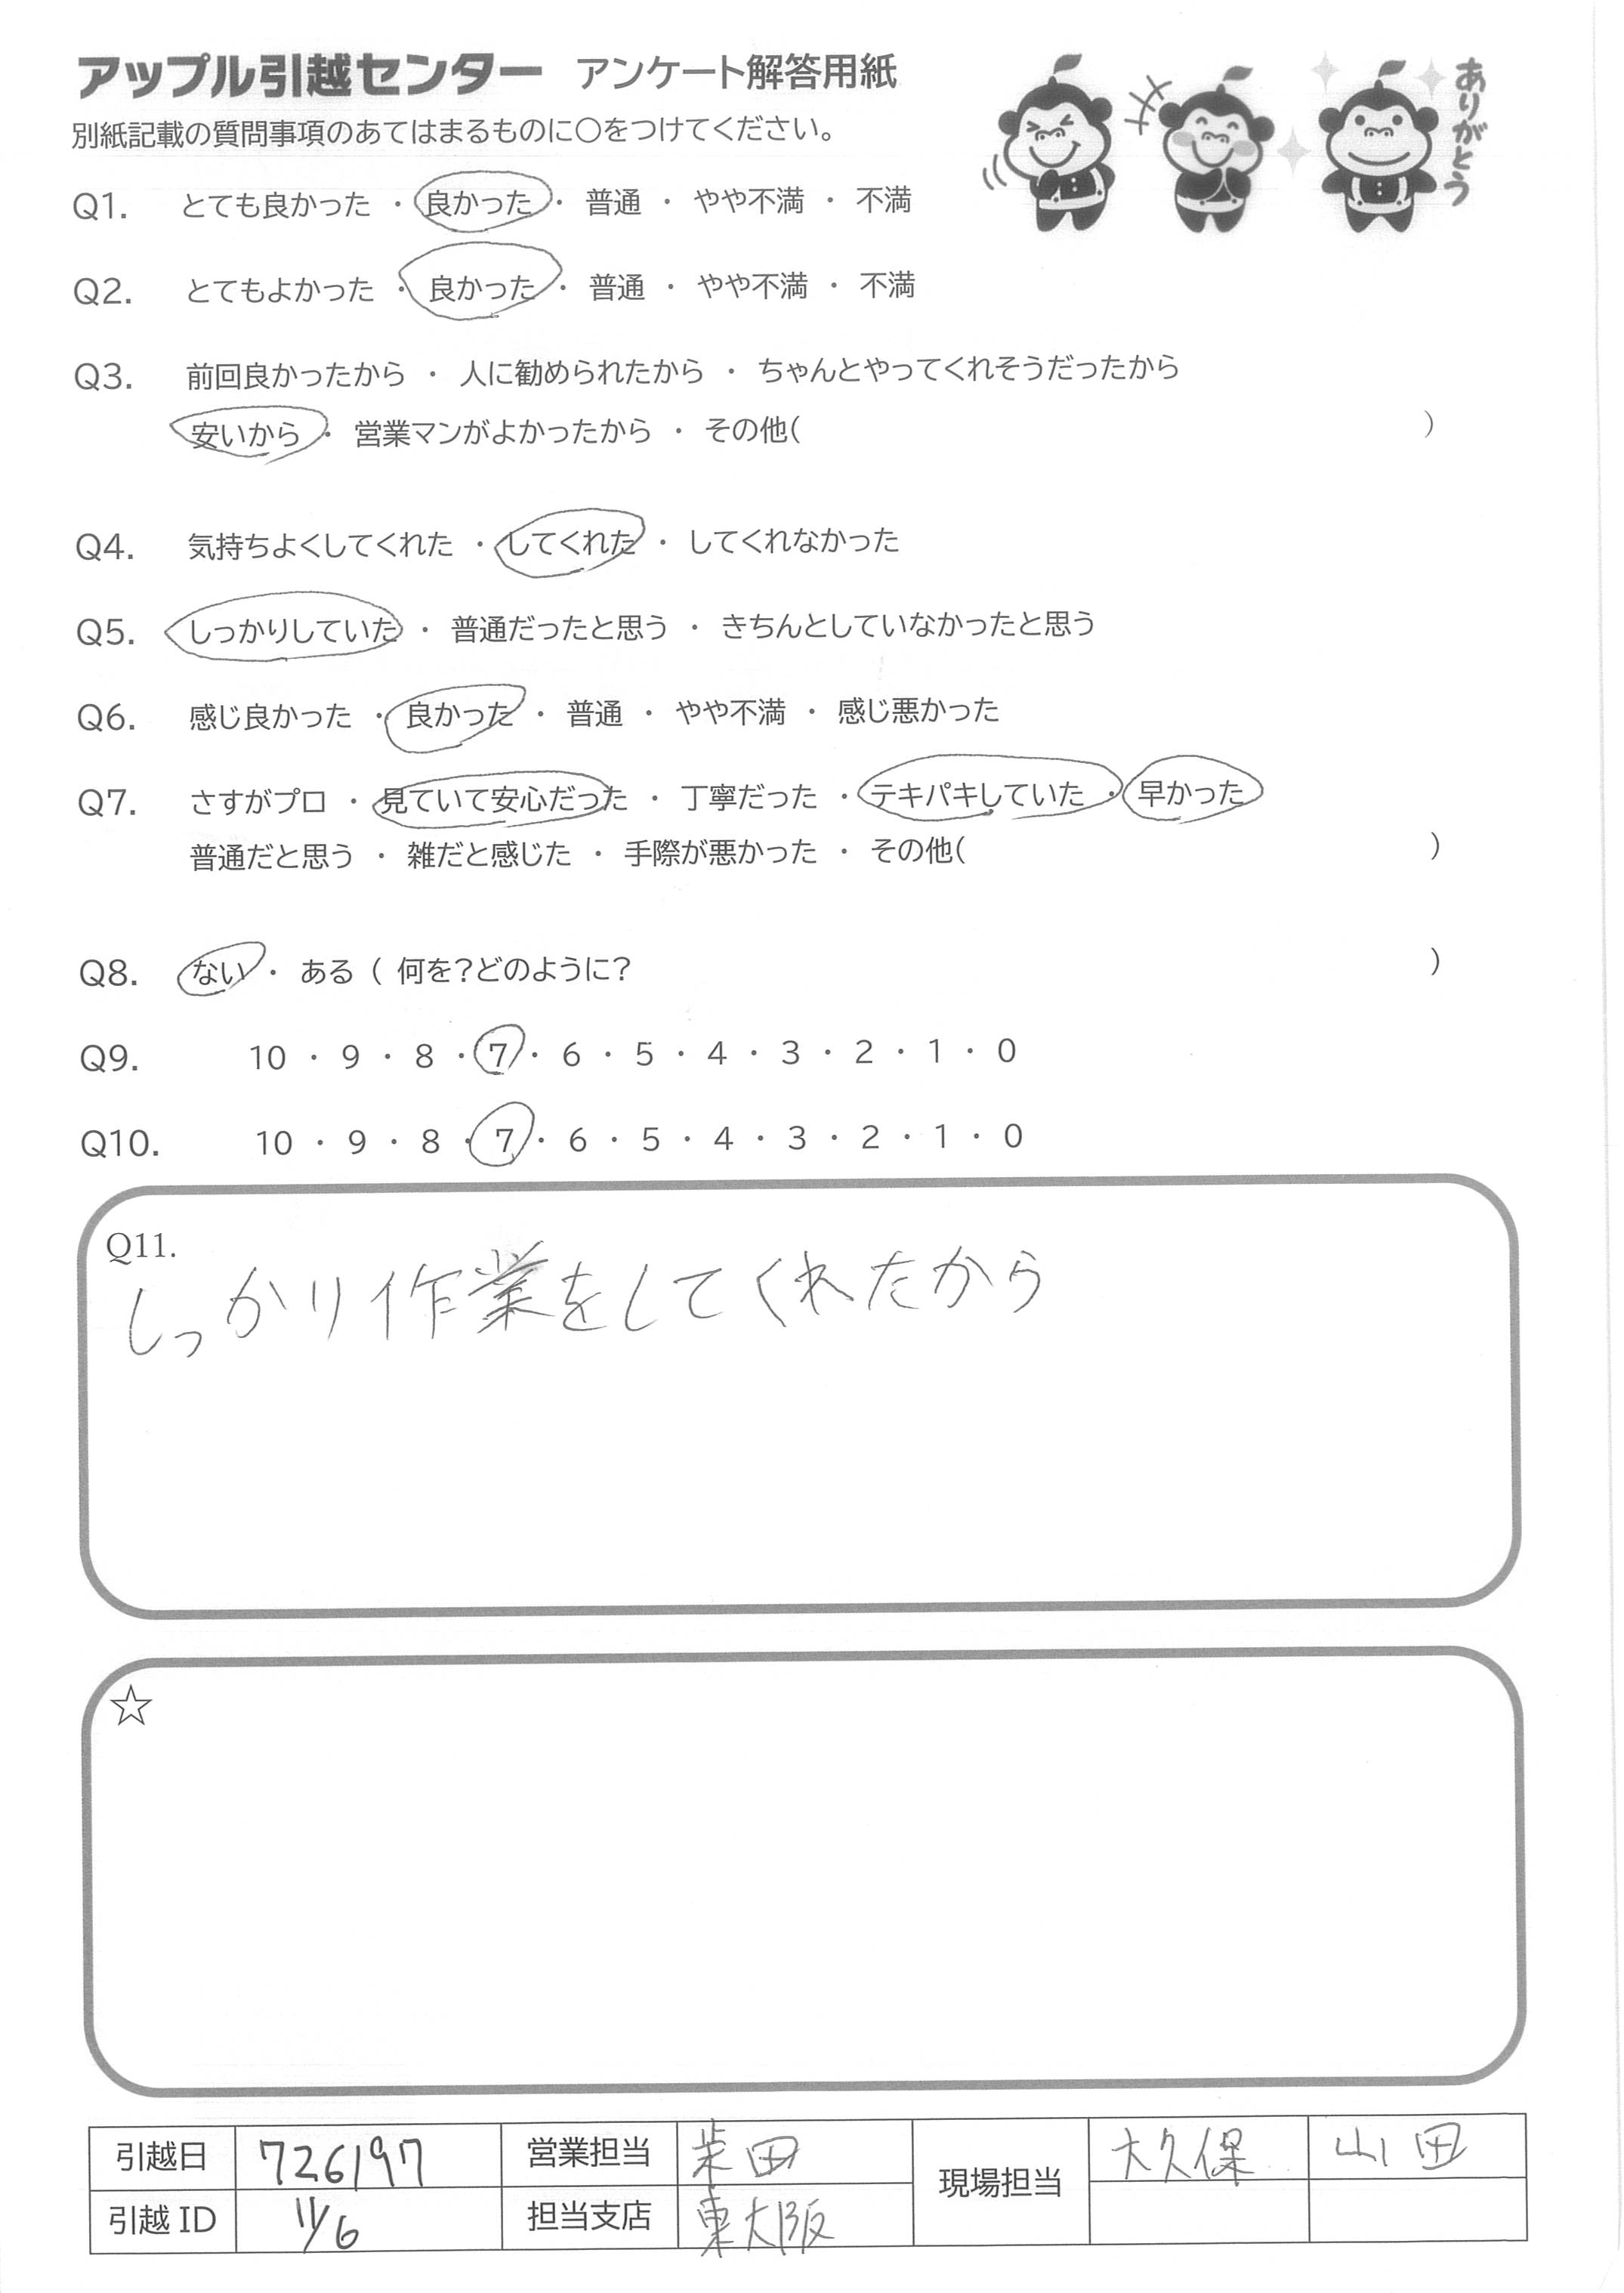 アップル引越センター アンケート解答用紙
ありがとう
別紙記載の質問事項のあてはまるものに○をつけてください。
Q1. とても良かった ・ 良かった ・ 普通 ・ やや不満 ・ 不満
Q2. とてもよかった ・ 良かった ・ 普通 ・ やや不満 ・ 不満
Q3. 前回良かったから ・ 人に勧められたから ・ ちゃんとやってくれそうだったから
安いから ・ 営業マンがよかったから ・ その他( )
Q4. 気持ちよくしてくれた ・ してくれた ・ してくれなかった
Q5. しっかりしていた ・ 普通だったと思う ・ きちんとしていなかったと思う
Q6. 感じ良かった ・ 良かった ・ 普通 ・ やや不満 ・ 感じ悪かった
Q7. さすがプロ ・ 見ていて安心だった ・ 丁寧だった ・ テキパキしていた ・ 早かった
普通だと思う ・ 雑だと感じた ・ 手際が悪かった ・ その他( )
Q8. ない ・ ある ( 何を?どのように? )
Q9. 10 ・ 9 ・ 8 ・ 7 ・ 6 ・ 5 ・ 4 ・ 3 ・ 2 ・ 1 ・ 0
Q10. 10 ・ 9 ・ 8 ・ 7 ・ 6 ・ 5 ・ 4 ・ 3 ・ 2 ・ 1 ・ 0
Q11.
しっかり作業をしてくれたから
☆
引越日 726197 営業担当 柴田 現場担当 大久保 山田
引越ID 11/6 担当支店 東大阪